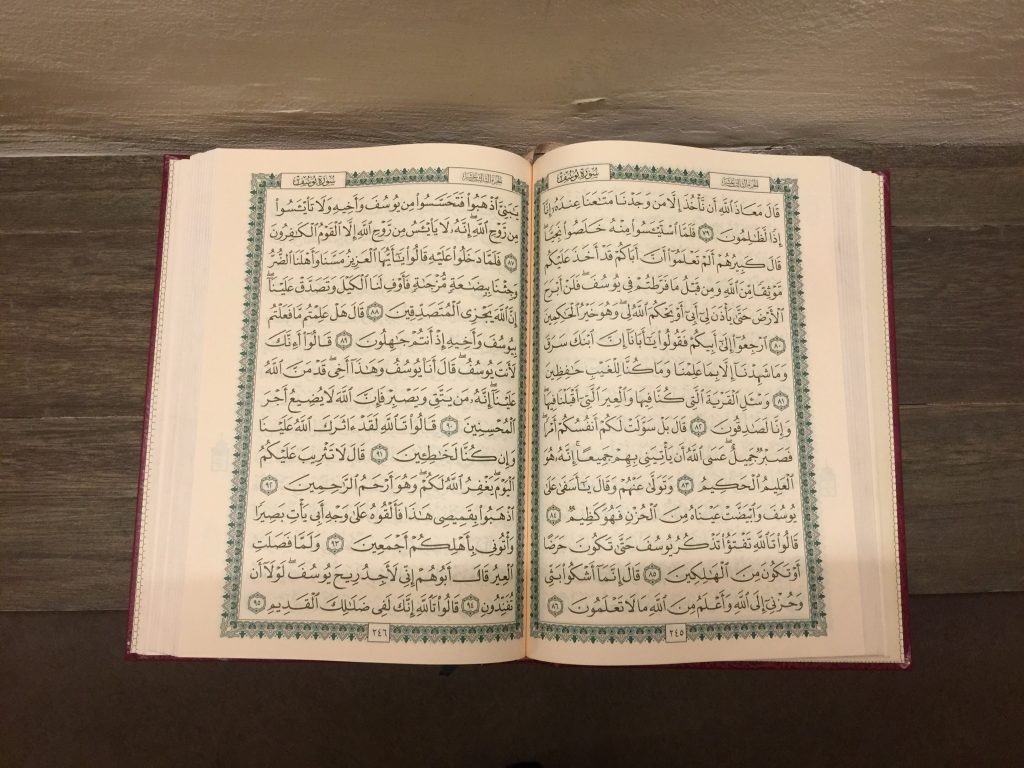 سُورَةُ يُوسُفَ
الجُزْءُ الثَّالِثَ عَشَرَ
قَالَ مَعَاذَ ٱللَّهِ أَن نَّأْخُذَ إِلَّا مَن وَجَدْنَا مَتَٰعَنَا عِندَهُۥٓ إِنَّآ
إِذًا لَّظَٰلِمُونَ ٧٩ فَلَمَّا ٱسْتَيْـَٔسُوا۟ مِنْهُ خَلَصُوا۟ نَجِيًّا ۖ
قَالَ كَبِيرُهُمْ أَلَمْ تَعْلَمُوٓا۟ أَنَّ أَبَاكُمْ قَدْ أَخَذَ عَلَيْكُم
مَّوْثِقًا مِّنَ ٱللَّهِ وَمِن قَبْلُ مَا فَرَّطتُمْ فِى يُوسُفَ ۖ فَلَنْ أَبْرَحَ
ٱلْأَرْضَ حَتَّىٰ يَأْذَنَ لِىٓ أَبِىٓ أَوْ يَحْكُمَ ٱللَّهُ لِى ۖ وَهُوَ خَيْرُ ٱلْحَٰكِمِينَ
٨٠ ٱرْجِعُوٓا۟ إِلَىٰٓ أَبِيكُمْ فَقُولُوا۟ يَٰٓأَبَانَآ إِنَّ ٱبْنَكَ سَرَقَ
وَمَا شَهِدْنَآ إِلَّا بِمَا عَلِمْنَا وَمَا كُنَّا لِلْغَيْبِ حَٰفِظِينَ
٨١ وَسْـَٔلِ ٱلْقَرْيَةَ ٱلَّتِى كُنَّا فِيهَا وَٱلْعِيرَ ٱلَّتِىٓ أَقْبَلْنَا فِيهَا ۖ
وَإِنَّا لَصَٰدِقُونَ ٨٢ قَالَ بَلْ سَوَّلَتْ لَكُمْ أَنفُسُكُمْ أَمْرًا ۖ
فَصَبْرٌ جَمِيلٌ ۖ عَسَى ٱللَّهُ أَن يَأْتِيَنِى بِهِمْ جَمِيعًا ۚ إِنَّهُۥ هُوَ
ٱلْعَلِيمُ ٱلْحَكِيمُ ٨٣ وَتَوَلَّىٰ عَنْهُمْ وَقَالَ يَٰٓأَسَفَىٰ عَلَىٰ
يُوسُفَ وَٱبْيَضَّتْ عَيْنَاهُ مِنَ ٱلْحُزْنِ فَهُوَ كَظِيمٌ ٨٤
قَالُوا۟ تَٱللَّهِ تَفْتَؤُا۟ تَذْكُرُ يُوسُفَ حَتَّىٰ تَكُونَ حَرَضًا
أَوْ تَكُونَ مِنَ ٱلْهَٰلِكِينَ ٨٥ قَالَ إِنَّمَآ أَشْكُوا۟ بَثِّى
وَحُزْنِىٓ إِلَى ٱللَّهِ وَأَعْلَمُ مِنَ ٱللَّهِ مَا لَا تَعْلَمُونَ ٨٦
٢٤٥
الجُزْءُ الثَّالِثَ عَشَرَ
سُورَةُ يُوسُفَ
يَٰبَنِىَّ ٱذْهَبُوا۟ فَتَحَسَّسُوا۟ مِن يُوسُفَ وَأَخِيهِ وَلَا تَا۟يْـَٔسُوا۟
مِن رَّوْحِ ٱللَّهِ ۖ إِنَّهُۥ لَا يَا۟يْـَٔسُ مِن رَّوْحِ ٱللَّهِ إِلَّا ٱلْقَوْمُ ٱلْكَٰفِرُونَ
٨٧ فَلَمَّا دَخَلُوا۟ عَلَيْهِ قَالُوا۟ يَٰٓأَيُّهَا ٱلْعَزِيزُ مَسَّنَا وَأَهْلَنَا ٱلضُّرُّ
وَجِئْنَا بِبِضَٰعَةٍ مُّزْجَىٰةٍ فَأَوْفِ لَنَا ٱلْكَيْلَ وَتَصَدَّقْ عَلَيْنَآ ۖ
إِنَّ ٱللَّهَ يَجْزِى ٱلْمُتَصَدِّقِينَ ٨٨ قَالَ هَلْ عَلِمْتُم مَّا فَعَلْتُم
بِيُوسُفَ وَأَخِيهِ إِذْ أَنتُمْ جَٰهِلُونَ ٨٩ قَالُوٓا۟ أَءِنَّكَ
لَأَنتَ يُوسُفُ ۖ قَالَ أَنَا۠ يُوسُفُ وَهَٰذَآ أَخِى ۖ قَدْ مَنَّ ٱللَّهُ
عَلَيْنَآ ۖ إِنَّهُۥ مَن يَتَّقِ وَيَصْبِرْ فَإِنَّ ٱللَّهَ لَا يُضِيعُ أَجْرَ
ٱلْمُحْسِنِينَ ٩٠ قَالُوا۟ تَٱللَّهِ لَقَدْ ءَاثَرَكَ ٱللَّهُ عَلَيْنَا
وَإِن كُنَّا لَخَٰطِـِٔينَ ٩١ قَالَ لَا تَثْرِيبَ عَلَيْكُمُ
ٱلْيَوْمَ ۖ يَغْفِرُ ٱللَّهُ لَكُمْ ۖ وَهُوَ أَرْحَمُ ٱلرَّٰحِمِينَ ٩٢
ٱذْهَبُوا۟ بِقَمِيصِى هَٰذَا فَأَلْقُوهُ عَلَىٰ وَجْهِ أَبِى يَأْتِ بَصِيرًا
وَأْتُونِى بِأَهْلِكُمْ أَجْمَعِينَ ٩٣ وَلَمَّا فَصَلَتِ
ٱلْعِيرُ قَالَ أَبُوهُمْ إِنِّى لَأَجِدُ رِيحَ يُوسُفَ ۖ لَوْلَآ أَن
تُفَنِّدُونِ ٩٤ قَالُوا۟ تَٱللَّهِ إِنَّكَ لَفِى ضَلَٰلِكَ ٱلْقَدِيمِ ٩٥
٢٤٦